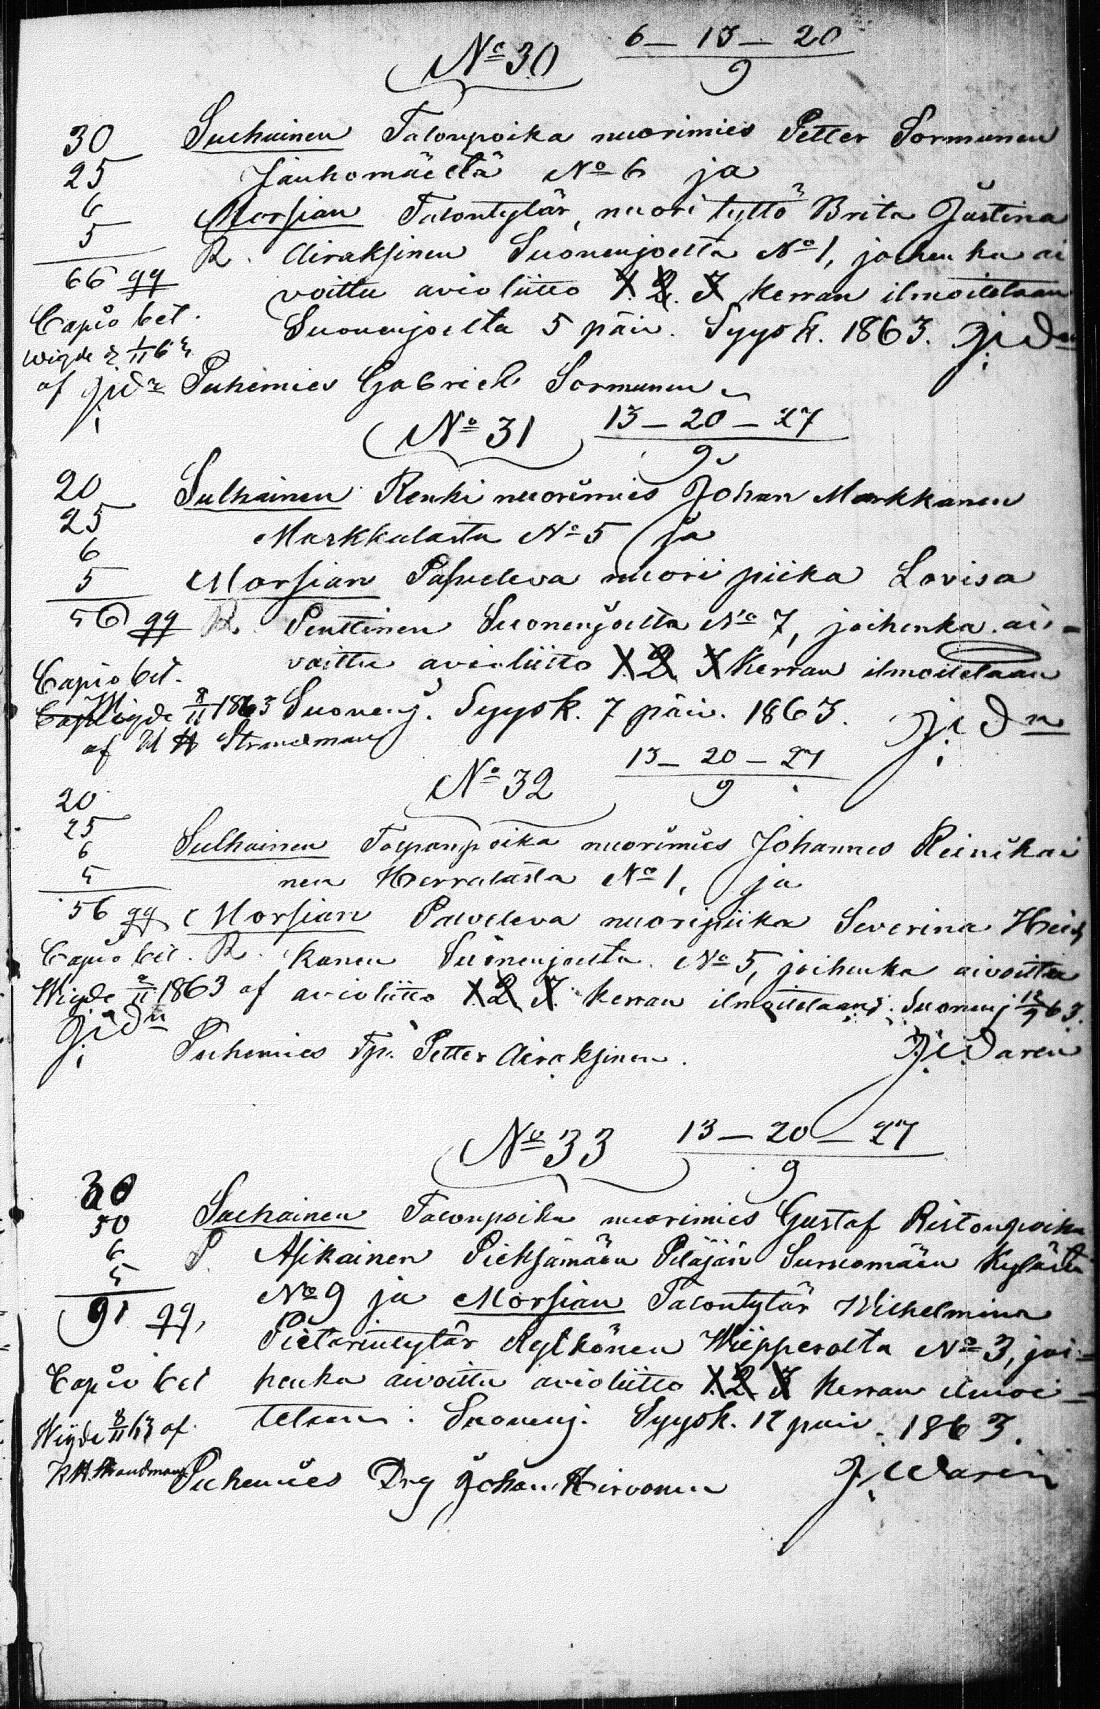 No 30 6 – 13 – 20
9
30 Sulhainen Talonpoika nuorimies Petter Sormunen
25 Jauhomäeltä No 6 ja
6 Morsian Talontytär, nuori tyttö Brita Justina
5 R. Airaksinen Suonenjoelta No 1, joihenka ai
66 voittu avioliitto 1. 2. 3 Kerran ilmoitetaan
Capio bet. Suonenjoelta 5 päiv. Syysk. 1863.
Wigde d. 1/11 63
af Puhemies Gabriel Sormunen
No 31 13 – 20 – 27
9
20 Sulhainen Renki nuorimies Johan Markkanen
25 Markkalasta No 5 ja
6
5 Morsian Palveleva nuori piika Lovisa
56 R. Penttinen Suonenjoelta No 7, joihenka ai-
voittu avioliitto 1 2 3 Kerran ilmoitetaan
Capio bet.
Wigde 8/11 1863 Suonenj. Syysk. 7 päiv. 1863.
af Strandman
No 32 13 – 20 – 27
9
20
25 Sulhainen Talonpoika nuorimies Johannes Reinikai
6
5 nen Herralasta No 1, ja
56 Morsian Palveleva nuoripiika Severina Heis
Capio bet. R. kanen Suonenjoelta No 5, joihenka aivoittu
Wigde 8/11 1863 af avioliitto 1 2 3 kerran ilmoitetaan. Suonenj 12/9 63.
Puhemies Tp. Petter Airaksinen.
No 33 13 – 20 – 27
9
30
50 Sulhainen Talonpoika nuorimies Gustaf Ristonpoika
6 P. Asikainen Pieksämäen Pitäjän Surnomäen Kylästä
5
91 No 9 ja Morsian Talontytär Wilhelmina
Pietarintytär Kylkönen Wiipperolta No 3, joi-
Capio bet henka aivoittu avioliitto 1 2 3 kerran ilmoi-
Wigde 8/11 63 af tetaan: Suonenj. Syysk. 12 päiv. 1863.
Strandman Puhemies Drg Johan Hirvonen J. Waren